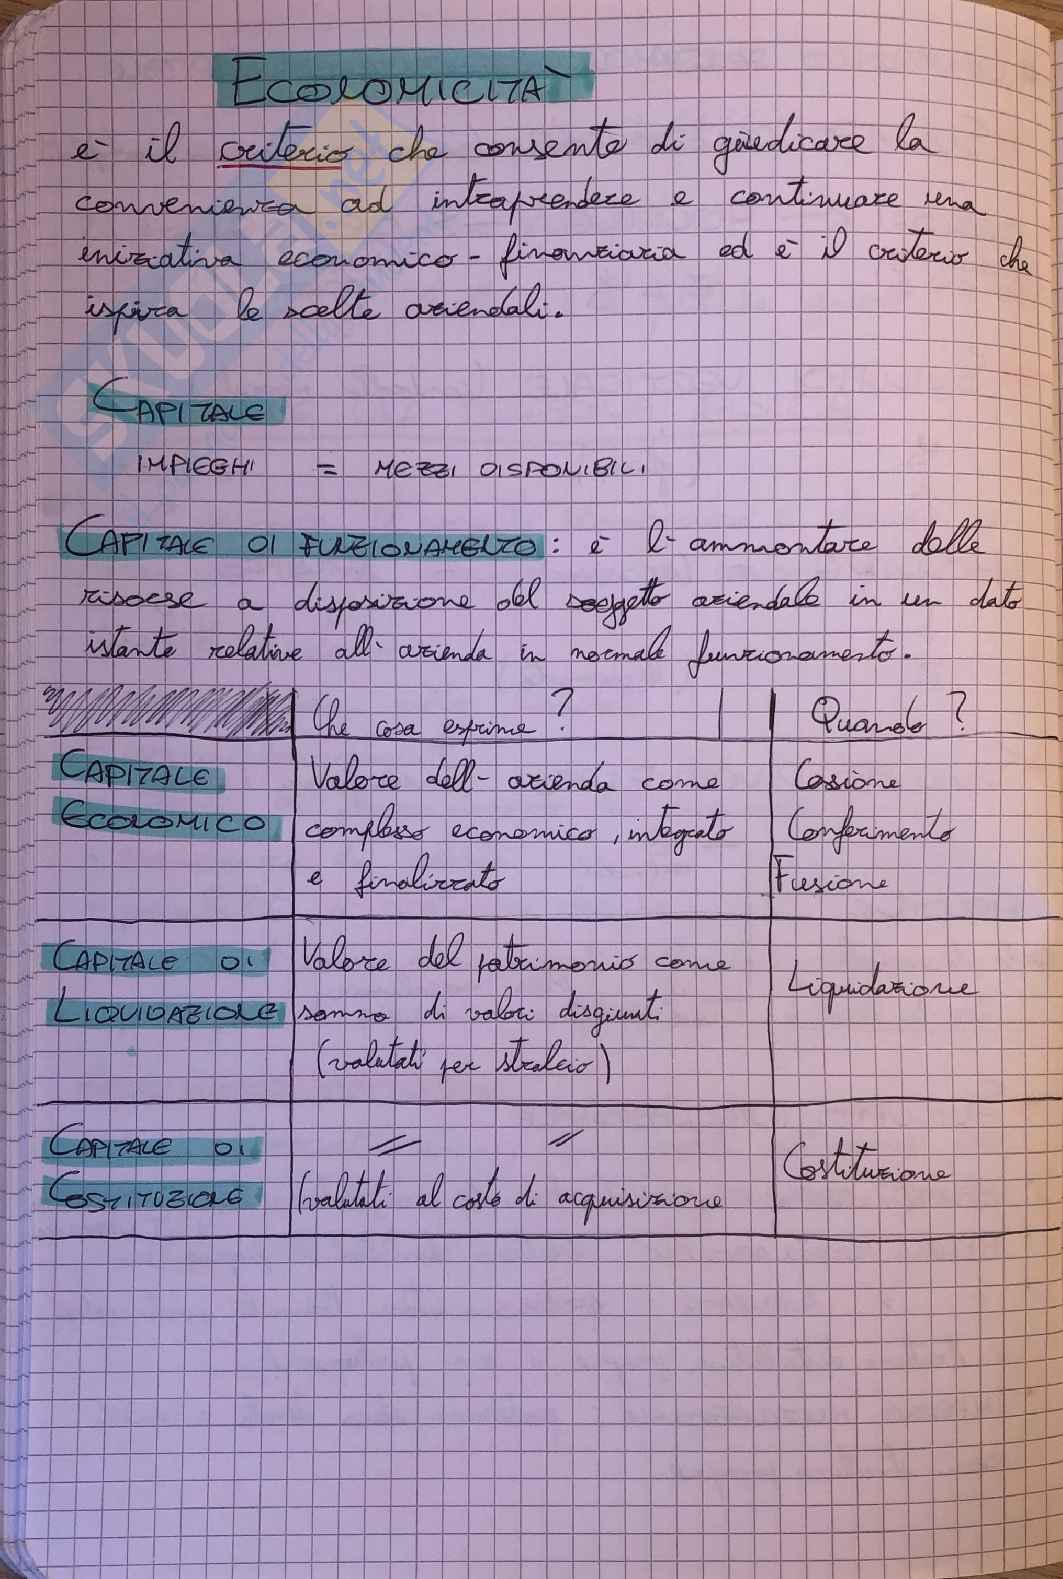 ECONOMICITÀ
è il criterio che consente di giudicare la
convenienza ad intraprendere e continuare una
iniziativa economico-finanziaria ed è il criterio che
ispira le scelte aziendali.
CAPITALE
IMPIEGHI = MEZZI DISPONIBILI
CAPITALE DI FUNZIONAMENTO: è l'ammontare delle
risorse a disposizione del soggetto aziendale in un dato
istante relative all'azienda in normale funzionamento.
Che cosa esprime? Quando?
CAPITALE ECONOMICO
Valore dell'azienda come
complesso economico, integrato
e finalizzato
Cessione
Conferimento
Fusione
CAPITALE DI
LIQUIDAZIONE
Valore del patrimonio come
somma di valori disgiunti
(valutati per stralcio)
Liquidazione
CAPITALE DI
COSTITUZIONE
// //
(valutati al costo di acquisizione
Costituzione
SKUOLA.net